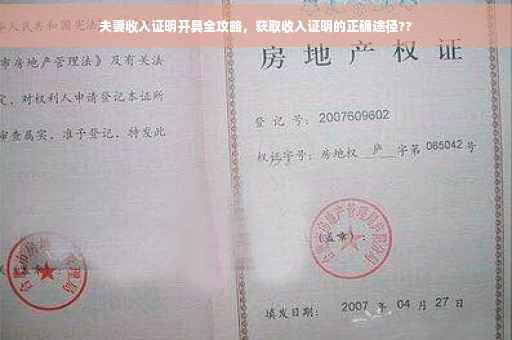 夫妻收入证明开具全攻略，获取收入证明的正确途径??
人民共和国宪法
市房地产管理法》及有关法
定，对权利人申请登记本证所
审查属实，准予登记，特发此
房地产权证
登记号：2007609602
权证字号：房地权 庐 字第 065042 号
(盖章)：
填发日期： 2007 年 04 月 27 日